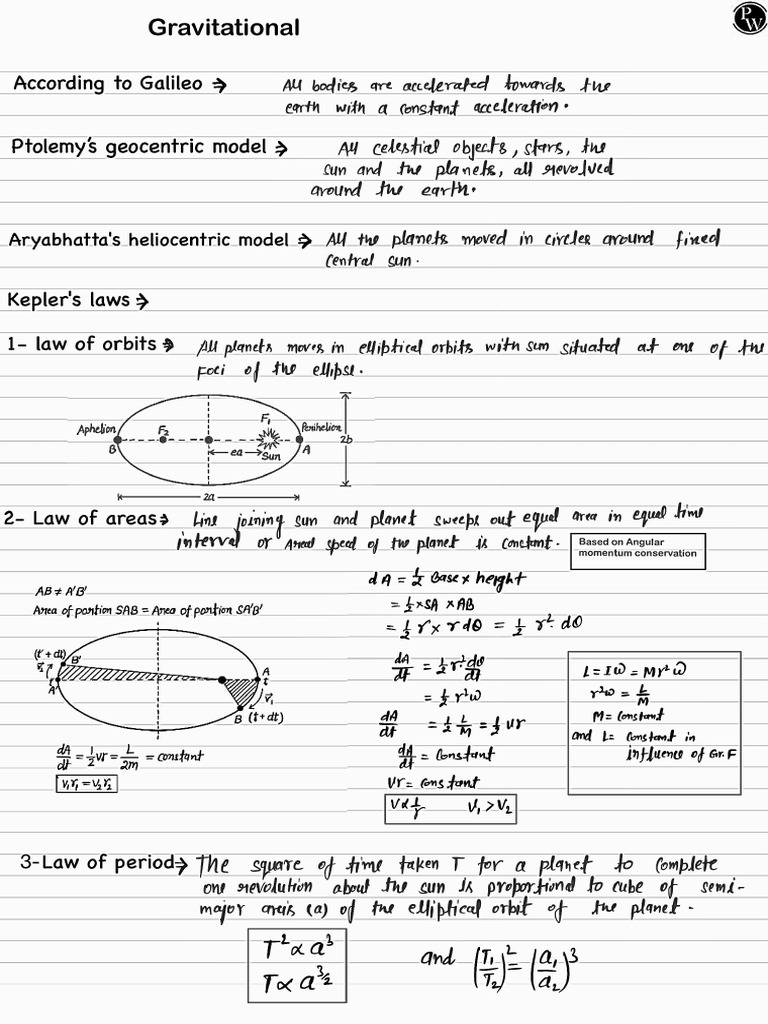 PW
Gravitational
According to Galileo → All bodies are accelerated towards the
earth with a constant acceleration.
Ptolemy's geocentric model → All celestial objects, stars, the
sun and the planets, all revolved
around the earth.
Aryabhatta's heliocentric model → All the planets moved in circles around fixed
central sun.
Kepler's laws →
1- law of orbits → All planets moves in elliptical orbits with sun situated at one of the
foci of the ellipse.
Aphelion
B
F₂
F₁
ea
Sun
Perihelion
A
2b
2a
2- Law of areas → Line joining sun and planet sweeps out equal area in equal time
interval or Areal speed of the planet is constant.
Based on Angular
momentum conservation
AB ≠ A'B'
Area of portion SAB = Area of portion SA'B'
(t' + dt)
B'
v⃗₂
t'
A'
A
t
v⃗₁
B
(t + dt)
dA/dt = 1/2 vr = L/2m = constant
v₁r₁ = v₂r₂
dA = 1/2 Base × height
= 1/2 × SA × AB
= 1/2 r × r dθ = 1/2 r². dθ
dA/dt = 1/2 r² dθ/dt
= 1/2 r²ω
dA/dt = 1/2 L/M = 1/2 vr
dA/dt = constant
Vr = constant
V ∝ 1/r V₁ > V₂
L = Iω = Mr²ω
r²ω = L/M
M = constant
and L = constant in
influence of Gr.F
3-Law of period → The square of time taken T for a planet to complete
one revolution about the sun is proportional to cube of semi-
major axis (a) of the elliptical orbit of the planet.
T² ∝ a³
T ∝ a^3/2
and (T₁/T₂)² = (a₁/a₂)³